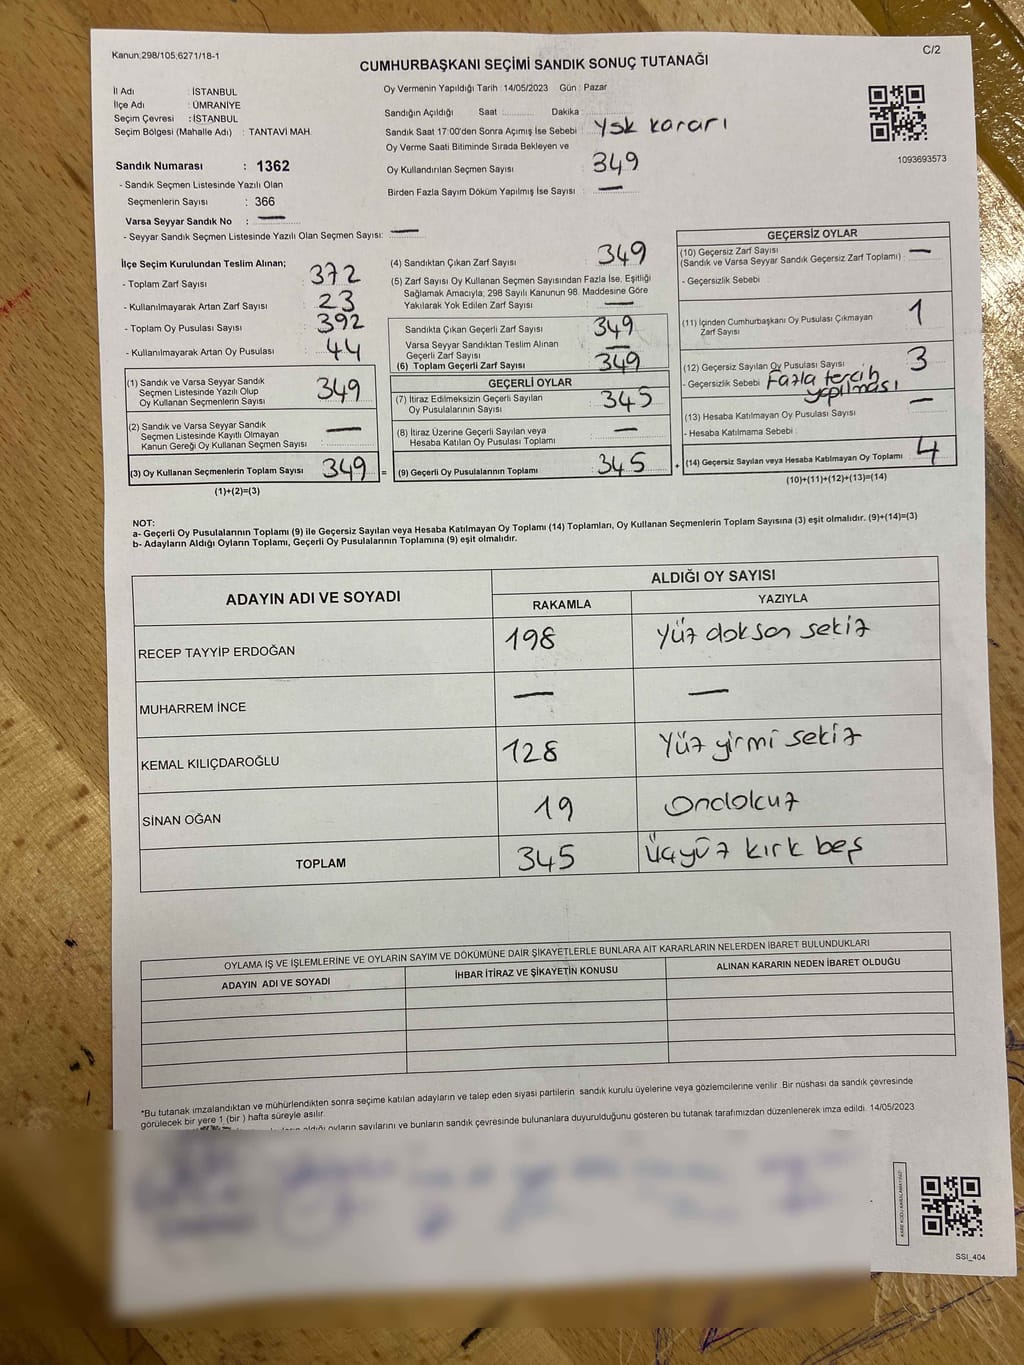 Kanun:298/105;6271/18-1
C/2
CUMHURBAŞKANI SEÇİMİ SANDIK SONUÇ TUTANAĞI
İl Adı : İSTANBUL
İlçe Adı : ÜMRANİYE
Seçim Çevresi : İSTANBUL
Seçim Bölgesi (Mahalle Adı) : TANTAVİ MAH.
Sandık Numarası : 1362
- Sandık Seçmen Listesinde Yazılı Olan
Seçmenlerin Sayısı : 366
Varsa Seyyar Sandık No : —
- Seyyar Sandık Seçmen Listesinde Yazılı Olan Seçmen Sayısı: —
Oy Vermenin Yapıldığı Tarih : 14/05/2023 Gün : Pazar
Sandığın Açıldığı Saat Dakika
Sandık Saat 17:00'den Sonra Açımış İse Sebebi Ysk kararı
Oy Verme Saati Bitiminde Sırada Bekleyen ve
Oy Kullandırılan Seçmen Sayısı : 349
Birden Fazla Sayım Döküm Yapılmış İse Sayısı : —
1093693573
İlçe Seçim Kurulundan Teslim Alınan;
- Toplam Zarf Sayısı : 372
- Kullanılmayarak Artan Zarf Sayısı : 23
- Toplam Oy Pusulası Sayısı : 392
- Kullanılmayarak Artan Oy Pusulası : 44
(1) Sandık ve Varsa Seyyar Sandık
Seçmen Listesinde Yazılı Olup
Oy Kullanan Seçmenlerin Sayısı 349
(2) Sandık ve Varsa Seyyar Sandık
Seçmen Listesinde Kayıtlı Olmayan
Kanun Gereği Oy Kullanan Seçmen Sayısı : —
(3) Oy Kullanan Seçmenlerin Toplam Sayısı 349 =
(1)+(2)=(3)
(4) Sandıktan Çıkan Zarf Sayısı : 349
(5) Zarf Sayısı Oy Kullanan Seçmen Sayısından Fazla İse, Eşitliği
Sağlamak Amacıyla; 298 Sayılı Kanunun 98. Maddesine Göre
Yakılarak Yok Edilen Zarf Sayısı : —
Sandıkta Çıkan Geçerli Zarf Sayısı : 349
Varsa Seyyar Sandıktan Teslim Alınan
Geçerli Zarf Sayısı : —
(6) Toplam Geçerli Zarf Sayısı 349
GEÇERLİ OYLAR
(7) İtiraz Edilmeksizin Geçerli Sayılan
Oy Pusulalarının Sayısı : 345
(8) İtiraz Üzerine Geçerli Sayılan veya
Hesaba Katılan Oy Pusulası Toplamı : —
(9) Geçerli Oy Pusulalarının Toplamı : 345 +
GEÇERSİZ OYLAR
(10) Geçersiz Zarf Sayısı
(Sandık ve Varsa Seyyar Sandık Geçersiz Zarf Toplamı) : —
- Geçersizlik Sebebi :
(11) İçinden Cumhurbaşkanı Oy Pusulası Çıkmayan
Zarf Sayısı 1
(12) Geçersiz Sayılan Oy Pusulası Sayısı : 3
- Geçersizlik Sebebi Fazla tercih
yapılması
(13) Hesaba Katılmayan Oy Pusulası Sayısı : —
- Hesaba Katılmama Sebebi :
(14) Geçersiz Sayılan veya Hesaba Katılmayan Oy Toplamı : 4
(10)+(11)+(12)+(13)=(14)
NOT:
a- Geçerli Oy Pusulalarının Toplamı (9) ile Geçersiz Sayılan veya Hesaba Katılmayan Oy Toplamı (14) Toplamları, Oy Kullanan Seçmenlerin Toplam Sayısına (3) eşit olmalıdır. (9)+(14)=(3)
b- Adayların Aldığı Oyların Toplamı, Geçerli Oy Pusulalarının Toplamına (9) eşit olmalıdır.
ADAYIN ADI VE SOYADI
ALDIĞI OY SAYISI
RAKAMLA YAZIYLA
RECEP TAYYİP ERDOĞAN 198 Yüz doksan sekiz
MUHARREM İNCE — —
KEMAL KILIÇDAROĞLU 128 Yüz yirmi sekiz
SİNAN OĞAN 19 Ondokuz
TOPLAM 345 Üçyüz kırk beş
OYLAMA İŞ VE İŞLEMLERİNE VE OYLARIN SAYIM VE DÖKÜMÜNE DAİR ŞİKAYETLERLE BUNLARA AİT KARARLARIN NELERDEN İBARET BULUNDUKLARI
ADAYIN ADI VE SOYADI İHBAR İTİRAZ VE ŞİKAYETİN KONUSU ALINAN KARARIN NEDEN İBARET OLDUĞU
*Bu tutanak imzalandıktan ve mühürlendikten sonra seçime katılan adayların ve talep eden siyasi partilerin sandık kurulu üyelerine veya gözlemcilerine verilir. Bir nüshası da sandık çevresinde
görülecek bir yere 1 (bir) hafta süreyle asılır.
aldığı oyların sayılarını ve bunların sandık çevresinde bulunanlara duyurulduğunu gösteren bu tutanak tarafımızdan düzenlenerek imza edildi. 14/05/2023
KARE KODU KARALAMAYINIZ!
SSI_404